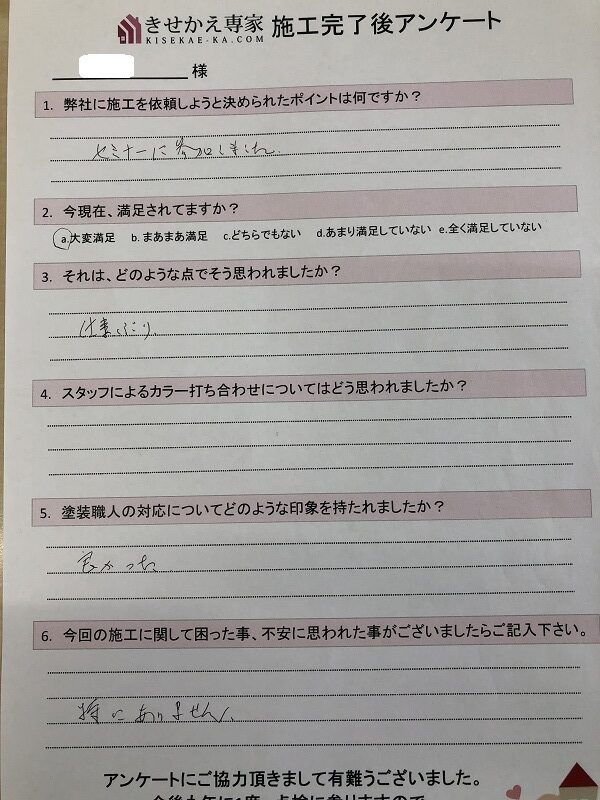 きせかえ専家 施工完了後アンケート
KISEKAE-KA.COM
様
1. 弊社に施工を依頼しようと決められたポイントは何ですか？
セミナーに参加しました。
2. 今現在、満足されてますか？
a.大変満足 b. まあまあ満足 c.どちらでもない d.あまり満足していない e.全く満足していない
3. それは、どのような点でそう思われましたか？
仕事ぶり。
4. スタッフによるカラー打ち合わせについてはどう思われましたか？
5. 塗装職人の対応についてどのような印象を持たれましたか？
良かった
6. 今回の施工に関して困った事、不安に思われた事がございましたらご記入下さい。
特にありません。
アンケートにご協力頂きまして有難うございました。
今後も年に1度、点検に参りますので